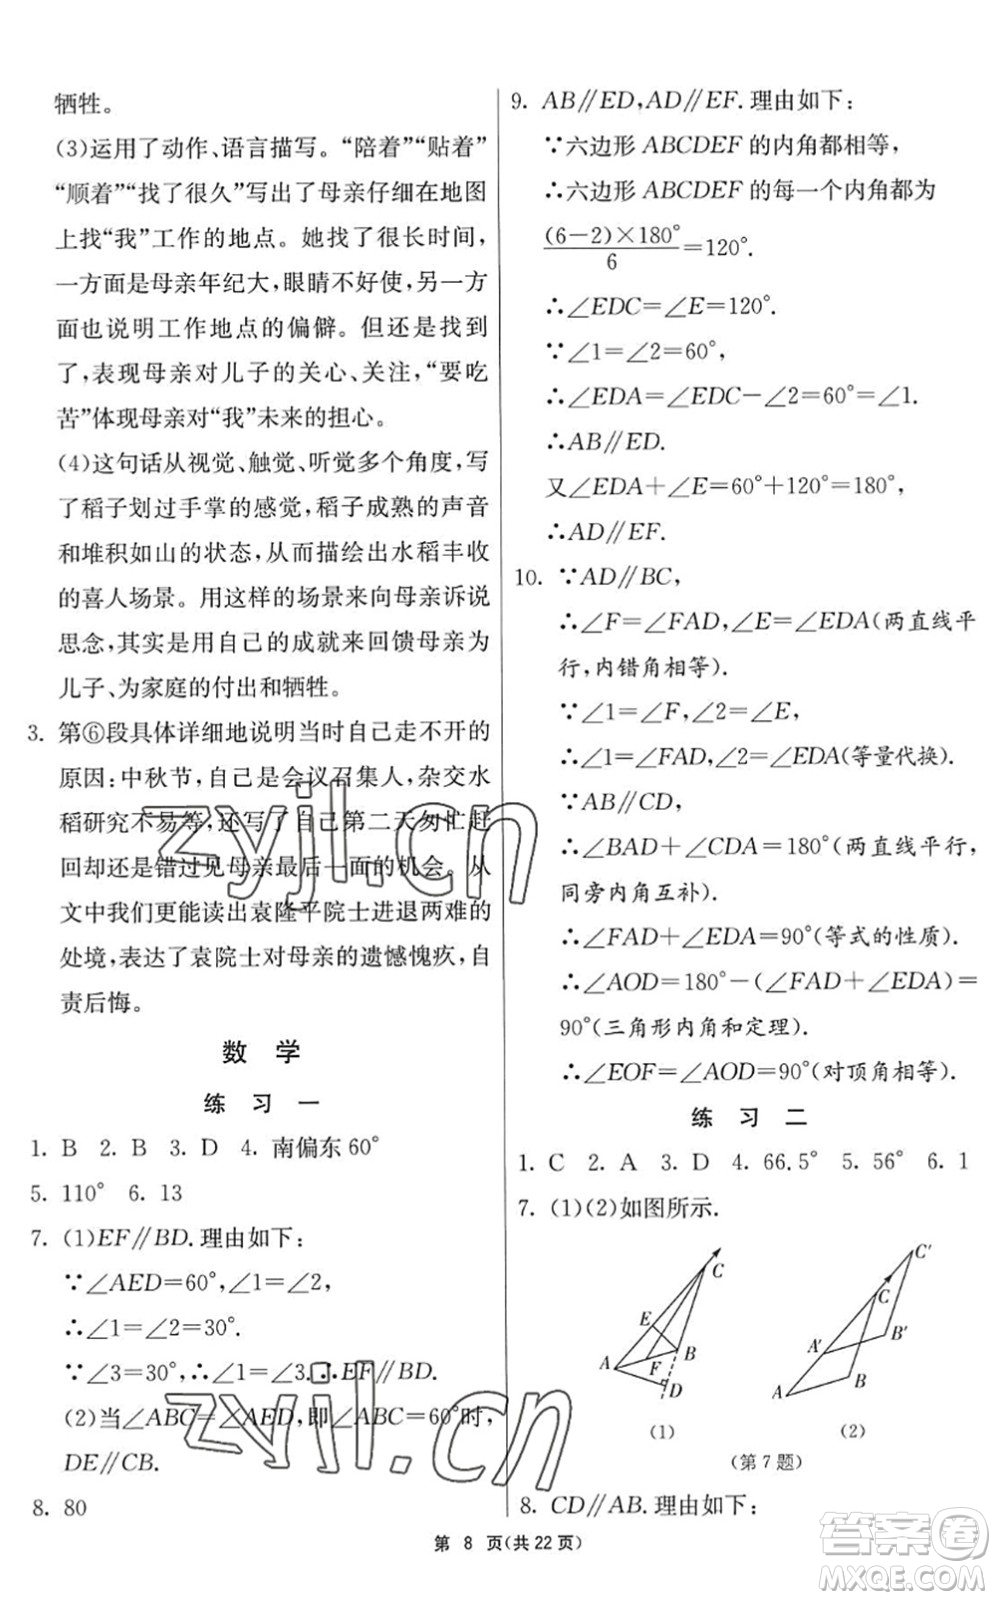 牺牲。
(3)运用了动作、语言描写。“陪着”“贴着”
“顺着”“找了很久”写出了母亲仔细在地图
上找“我”工作的地点。她找了很长时间，
一方面是母亲年纪大，眼睛不好使，另一方
面也说明工作地点的偏僻。但还是找到
了，表现母亲对儿子的关心、关注，“要吃
苦”体现母亲对“我”未来的担心。
(4)这句话从视觉、触觉、听觉多个角度，写
了稻子划过手掌的感觉，稻子成熟的声音
和堆积如山的状态，从而描绘出水稻丰收
的喜人场景。用这样的场景来向母亲诉说
思念，其实是用自己的成就来回馈母亲为
儿子、为家庭的付出和牺牲。
3. 第⑥段具体详细地说明当时自己走不开的
原因：中秋节，自己是会议召集人，杂交水
稻研究不易等，还写了自己第二天匆忙赶
回却还是错过见母亲最后一面的机会。从
文中我们更能读出袁隆平院士进退两难的
处境，表达了袁院士对母亲的遗憾愧疚，自
责后悔。
数 学
练 习 一
1. B 2. B 3. D 4. 南偏东60°
5. 110° 6. 13
7. (1)EF∥BD. 理由如下：
∵∠AED=60°,∠1=∠2,
∴∠1=∠2=30°.
∵∠3=30°,∴∠1=∠3.∴EF∥BD.
(2)当∠ABC=∠AED,即∠ABC=60°时，
DE∥CB.
8. 80
9. AB∥ED,AD∥EF. 理由如下：
∵六边形ABCDEF的内角都相等，
∴六边形ABCDEF的每一个内角都为
(6-2)×180°/6=120°.
∴∠EDC=∠E=120°.
∵∠1=∠2=60°,
∴∠EDA=∠EDC-∠2=60°=∠1.
∴AB∥ED.
又∠EDA+∠E=60°+120°=180°,
∴AD∥EF.
10. ∵AD∥BC,
∴∠F=∠FAD,∠E=∠EDA(两直线平
行,内错角相等).
∵∠1=∠F,∠2=∠E,
∴∠1=∠FAD,∠2=∠EDA(等量代换).
∵AB∥CD,
∴∠BAD+∠CDA=180°(两直线平行,
同旁内角互补).
∴∠FAD+∠EDA=90°(等式的性质).
∴∠AOD=180°-(∠FAD+∠EDA)=
90°(三角形内角和定理).
∴∠EOF=∠AOD=90°(对顶角相等).
练 习 二
1. C 2. A 3. D 4. 66.5° 5. 56° 6. 1
7. (1)(2)如图所示.
C
E
B
A
F
D
(1)
C′
C
A′
B′
B
A
(2)
(第7题)
8. CD∥AB. 理由如下：
第 8 页(共22页)
zyjl.cn
zyjl.cn
答案圈
MXQE.COM